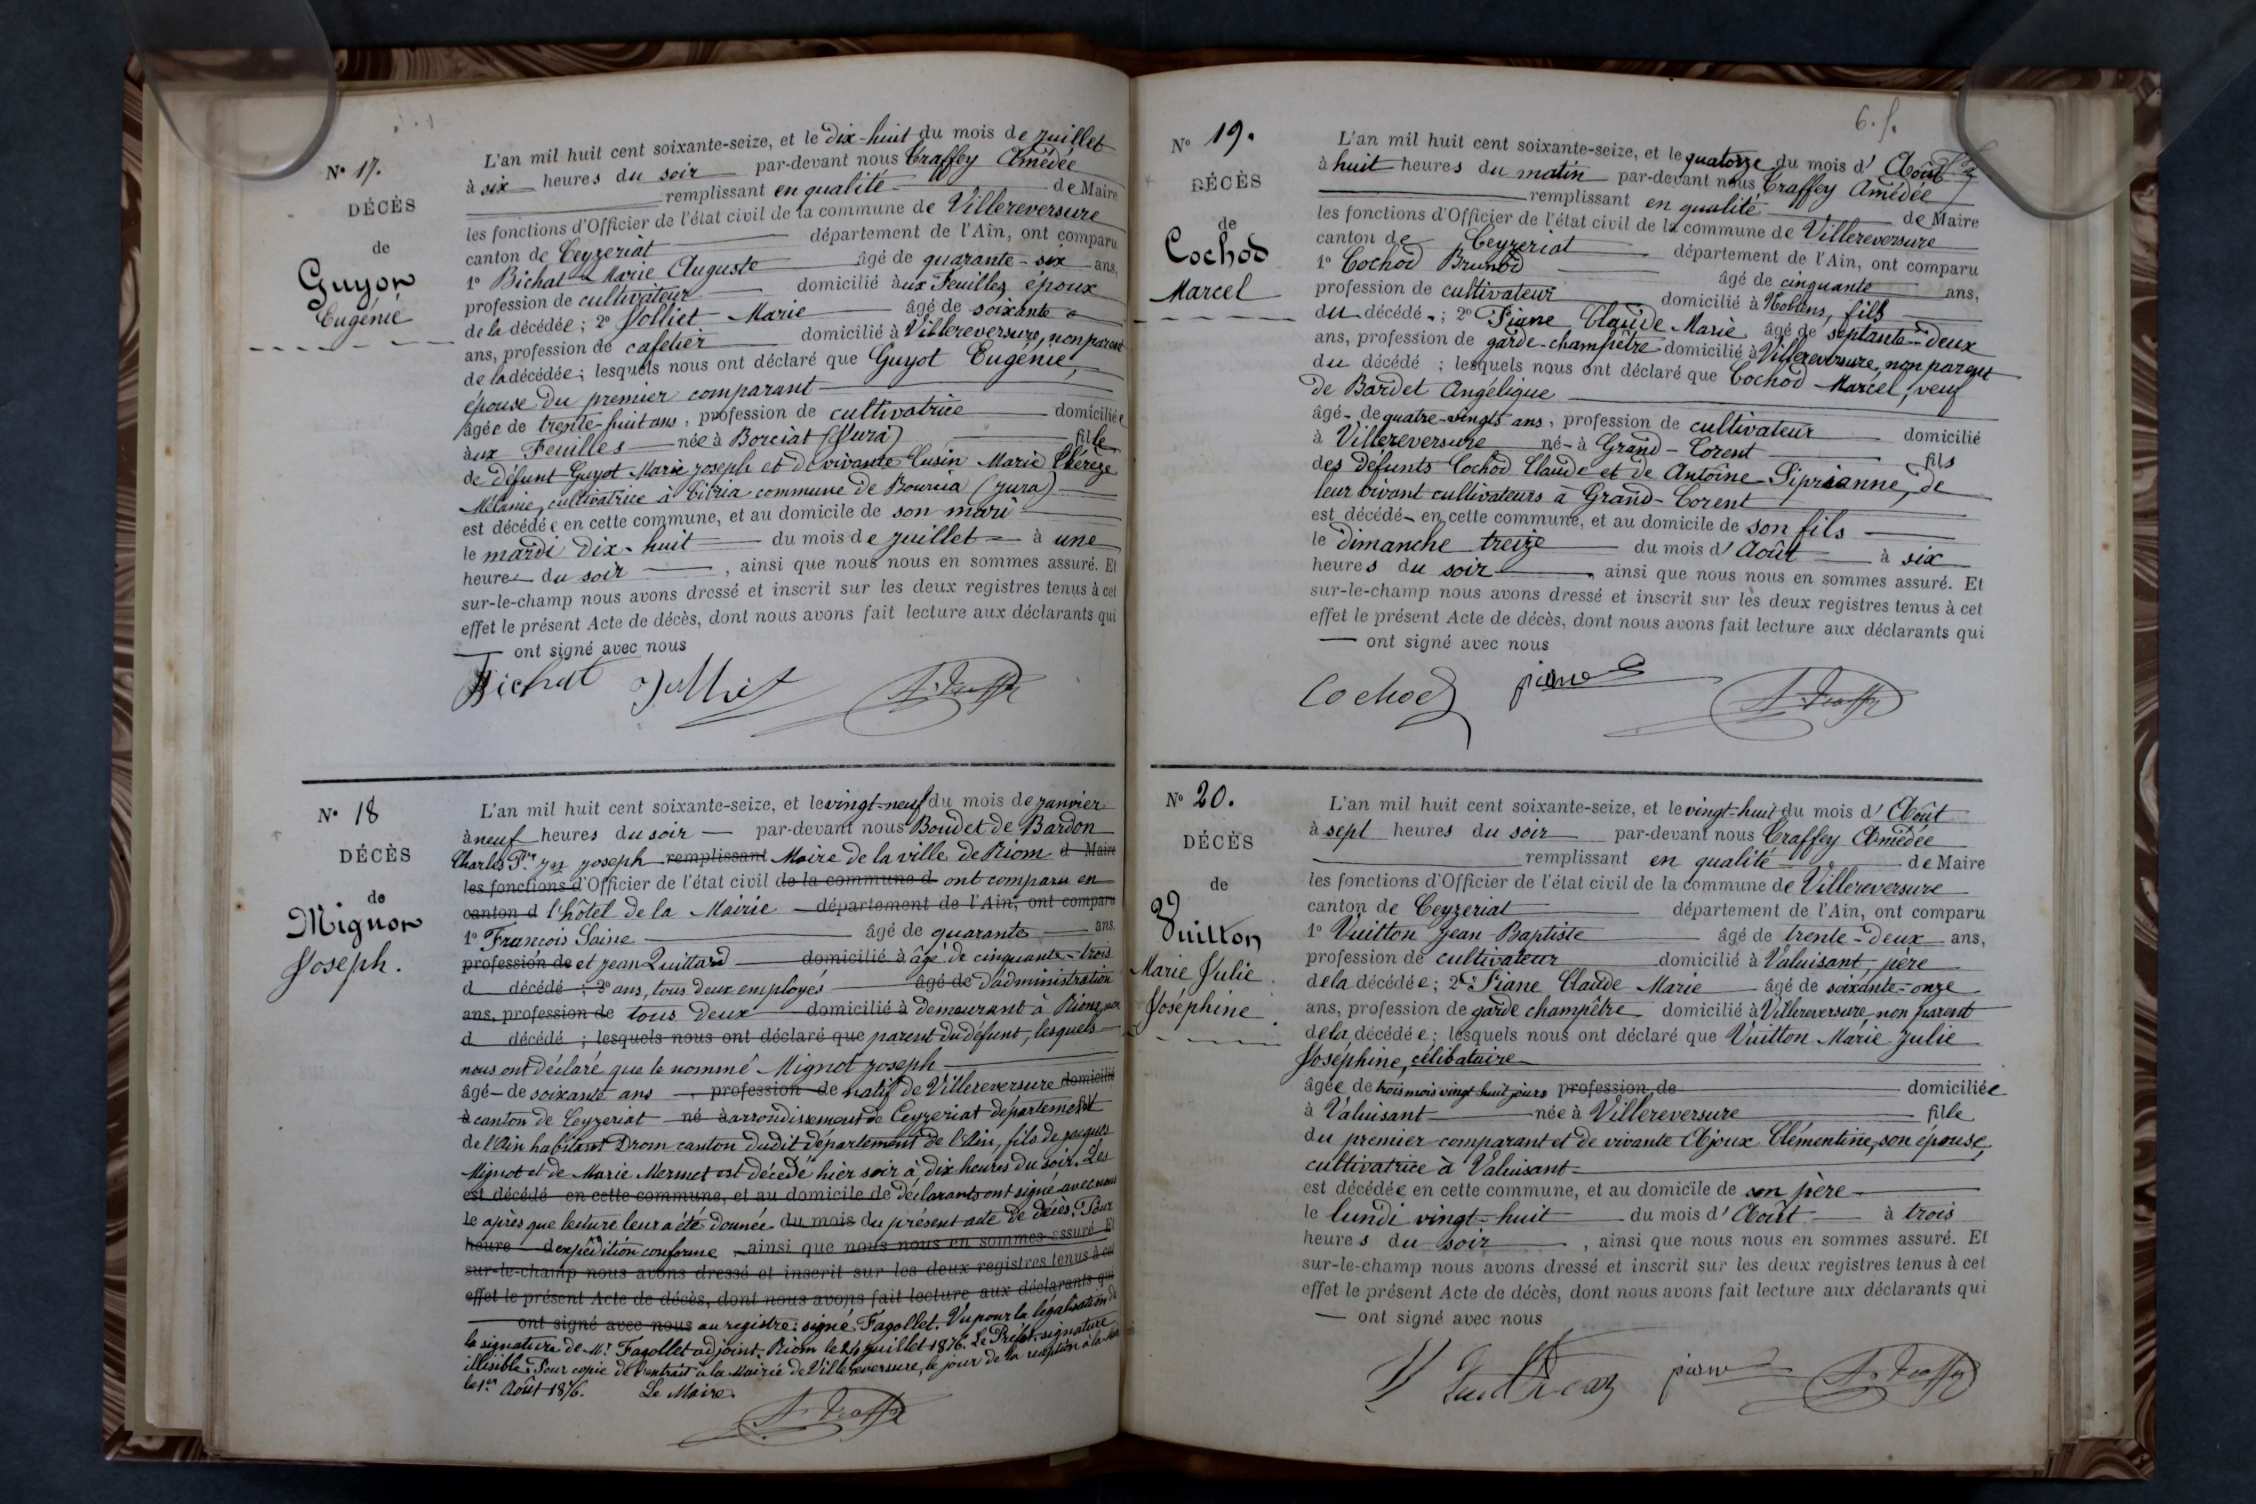 N° 17.
DÉCÈS
de
Guyot
Eugénie
L'an mil huit cent soixante-seize, et le dix-huit du mois de juillet
à six heures du soir par-devant nous Traffey Amédée
remplissant en qualité de Maire
les fonctions d'Officier de l'état civil de la commune de Villereversure
canton de Ceyzeriat département de l'Ain, ont comparu
1° Bichat Marie Auguste âgé de quarante-six ans,
profession de cultivateur domicilié aux Feuilles époux
de la décédée; 2° Jolliet Marie âgé de soixante
ans, profession de cafetier domicilié à Villereversure, non parent
de la décédée; lesquels nous ont déclaré que Guyot Eugénie,
épouse du premier comparant
âgée de trente-huit ans, profession de cultivatrice domiciliée
aux Feuilles née à Borciat (Jura) fille
de défunt Guyot Marie Joseph et de vivante Cusin Marie Thérèze
Mélanie, cultivatrice à Civria commune de Bourcia (Jura)
est décédée en cette commune, et au domicile de son mari
le mardi dix-huit du mois de juillet à une
heure du soir, ainsi que nous nous en sommes assuré. Et
sur-le-champ nous avons dressé et inscrit sur les deux registres tenus à cet
effet le présent Acte de décès, dont nous avons fait lecture aux déclarants qui
ont signé avec nous
Bichat Jolliet A. Traffey
N° 18
DÉCÈS
de
Mignot
Joseph.
L'an mil huit cent soixante-seize, et le vingt-neuf du mois de janvier
à neuf heures du soir par-devant nous Boudet de Bardon
Charles Joseph remplissant Maire de la ville de Riom d Maire
les fonctions d'Officier de l'état civil de la commune d ont comparu en
canton d l'hôtel de la Mairie département de l'Ain, ont comparu
1° François Saine âgé de quarante ans.
profession de et Jean Quittard domicilié à âgé de cinquante-trois
d décédé; 2° ans, tous deux employés âgé de d'administration
ans, profession de tous deux domicilié à demeurant à Riom, non
d décédé; lesquels nous ont déclaré que parent du défunt, lesquels
nous ont déclaré que le nommé Mignot Joseph
âgé de soixante ans, profession de natif de Villereversure domicilié
à canton de Ceyzeriat né à arrondissement de Ceyzeriat département fil
de l'Ain habitant Drom canton dudit département de l'Ain, fils de Jacques
Mignot et de Marie Mermet est décédé hier soir à dix heures du soir. Les
est décédé en cette commune, et au domicile de déclarants ont signé avec nous
le après que lecture leur a été donnée du mois du présent acte de décès. Pour
heure d expédition conforme, ainsi que nous nous en sommes assuré. Et
sur-le-champ nous avons dressé et inscrit sur les deux registres tenus à cet
effet le présent Acte de décès, dont nous avons fait lecture aux déclarants qui
ont signé avec nous au registre: signé Fagollet. Vu pour la légalisation de
la signature de Mr Fagollet adjoint. Riom le 24 juillet 1876. Le Préfet: signature
illisible. Pour copie de l'extrait à la Mairie de Villereversure, le jour de la réception à la
le 1er Août 1876. Le Maire.
A. Traffey
6. f.
N° 19.
DÉCÈS
de
Cochod
Marcel
L'an mil huit cent soixante-seize, et le quatorze du mois d'Août
à huit heures du matin par-devant nous Traffey Amédée
remplissant en qualité de Maire
les fonctions d'Officier de l'état civil de la commune de Villereversure
canton de Ceyzeriat département de l'Ain, ont comparu
1° Cochod Brunod âgé de cinquante ans,
profession de cultivateur domicilié à Noblens, fils
du décédé; 2° Piane Claude Marie âgé de septante-deux
ans, profession de garde-champêtre domicilié à Villereversure, non parent
du décédé; lesquels nous ont déclaré que Cochod Marcel, veuf
de Bardet Angélique
âgé de quatre-vingts ans, profession de cultivateur domicilié
à Villereversure né à Grand-Corent fils
des défunts Cochod Claude et de Antoine Piprianne, de
leur vivant cultivateurs à Grand-Corent
est décédé en cette commune, et au domicile de son fils
le dimanche treize du mois d'Août à six
heures du soir, ainsi que nous nous en sommes assuré. Et
sur-le-champ nous avons dressé et inscrit sur les deux registres tenus à cet
effet le présent Acte de décès, dont nous avons fait lecture aux déclarants qui
ont signé avec nous
Cochod piane A. Traffey
N° 20.
DÉCÈS
de
Vuitton
Marie Julie
Joséphine
L'an mil huit cent soixante-seize, et le vingt-huit du mois d'Août
à sept heures du soir par-devant nous Traffey Amédée
remplissant en qualité de Maire
les fonctions d'Officier de l'état civil de la commune de Villereversure
canton de Ceyzeriat département de l'Ain, ont comparu
1° Vuitton Jean Baptiste âgé de trente-deux ans,
profession de cultivateur domicilié à Valuisant père
de la décédée; 2° Piane Claude Marie âgé de soixante-onze
ans, profession de garde champêtre domicilié à Villereversure non parent
de la décédée; lesquels nous ont déclaré que Vuitton Marie Julie
Joséphine, célibataire
âgée de trois mois vingt huit jours profession de domiciliée
à Valuisant née à Villereversure fille
du premier comparant et de vivante Ajoux Clémentine, son épouse,
cultivatrice à Valuisant
est décédée en cette commune, et au domicile de son père
le lundi vingt-huit du mois d'Août à trois
heures du soir, ainsi que nous nous en sommes assuré. Et
sur-le-champ nous avons dressé et inscrit sur les deux registres tenus à cet
effet le présent Acte de décès, dont nous avons fait lecture aux déclarants qui
ont signé avec nous
piane A. Traffey